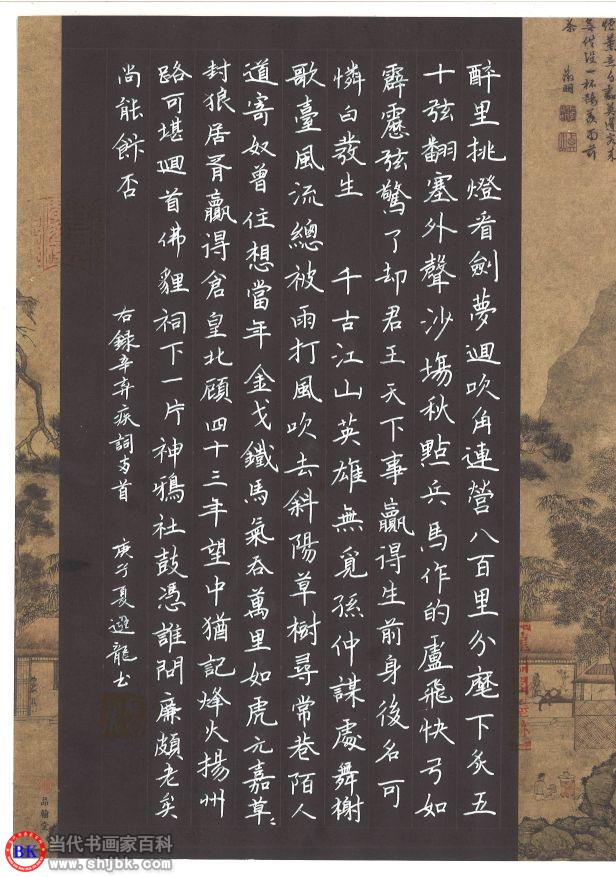 醉里挑燈看劍夢迴吹角連營八百里分麾下炙五
十弦翻塞外聲沙場秋點兵馬作的盧飛快弓如
霹靂弦驚了却君王天下事贏得生前身後名可
憐白發生 千古江山英雄無覓孫仲謀處舞榭
歌臺風流總被雨打風吹去斜陽草樹尋常巷陌人
道寄奴曾住想當年金戈鐵馬氣吞萬里如虎元嘉草〻
封狼居胥贏得倉皇北顧四十三年望中猶記烽火揚州
路可堪迴首佛貍祠下一片神鴉社鼓憑誰問廉頗老矣
尚能飰否
右録辛弃疾詞两首 庚子夏遊龍書
品翰堂
BK 当代书画家百科
www.shjbk.com